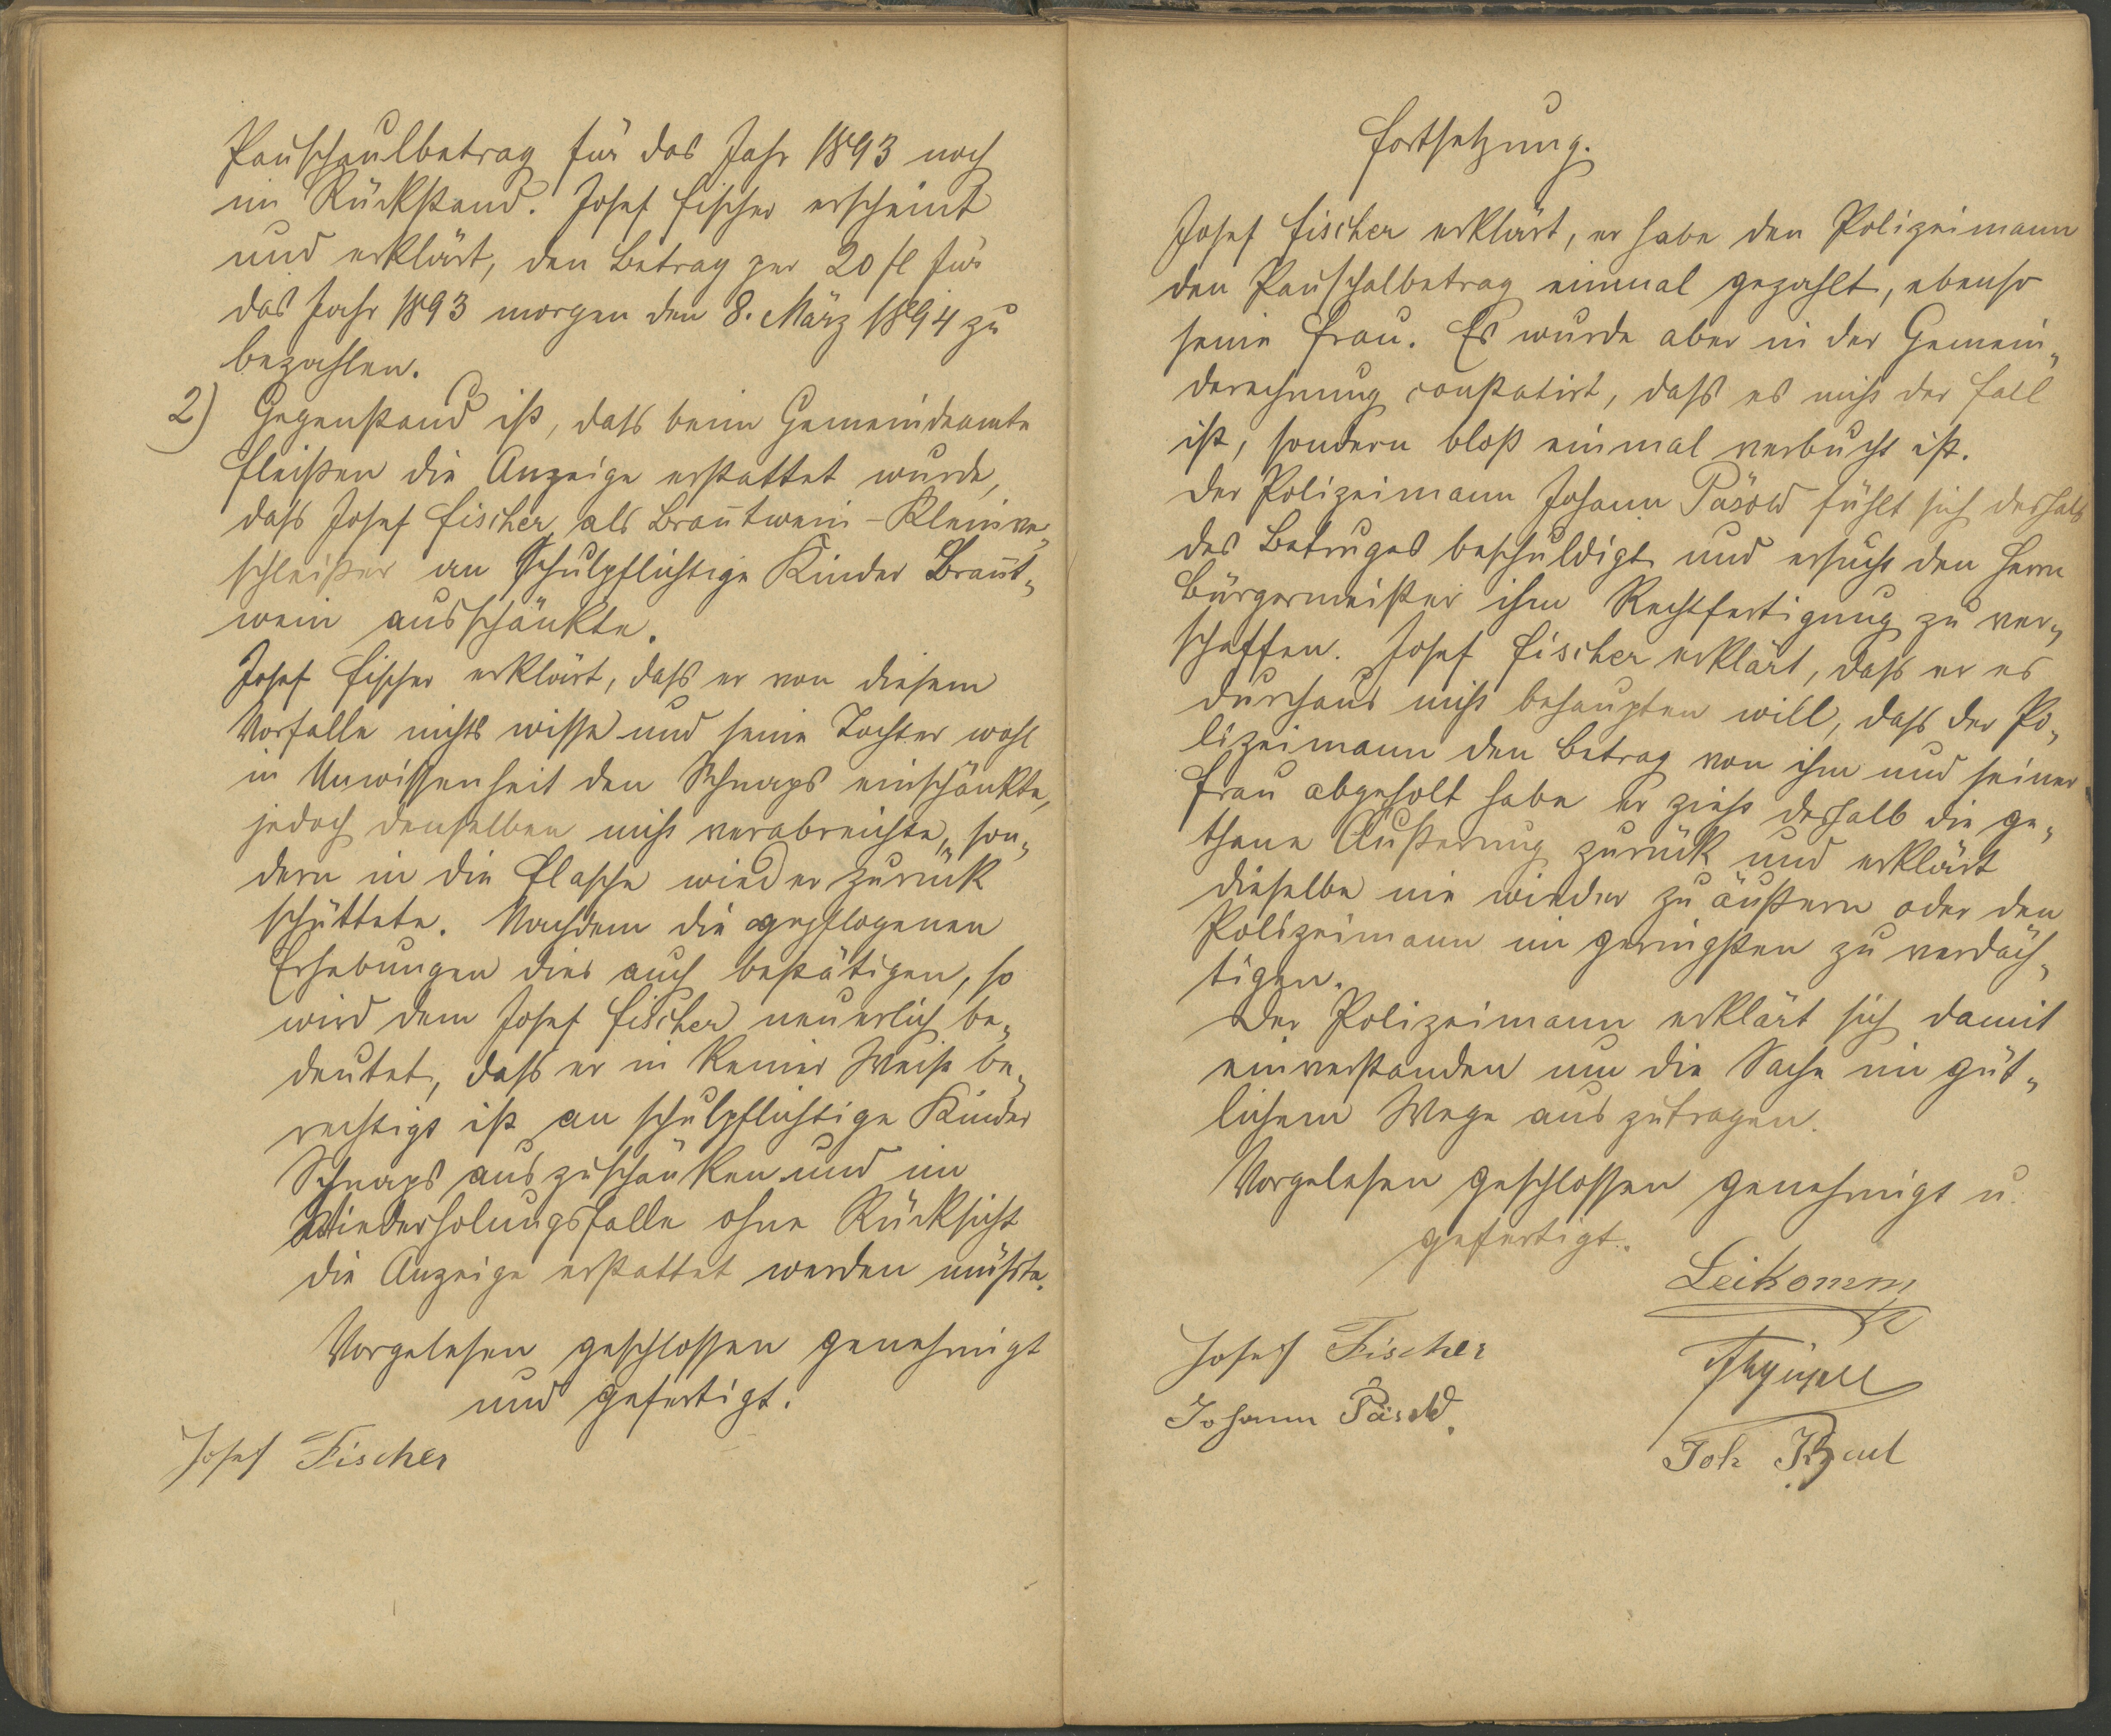 Pauschaulbetrag für das Jahr 1893 noch
im Rückstand. Josef Fischer erscheint
und erklärt, den Betrag per 20 fl für
das Jahr 1893 morgen den 8. März 1894 zu
bezahlen.
2) Gegenstand ist, daß beim Gemeindeamte
Fleißen die Anzeige erstattet wurde,
daß Josef Fischer als Brañtwein-Kleinver„
schleißer an Schulpflichtige Kinder Brañt„
wein ausschänkte.
Josef Fischer erklärt, daß er von diesem
Vorfalle nichts wisse und seine Tochter wohl
in Unwissenheit den Schnaps einschänkte,
jedoch denselben nicht verabreichte, son„
dern in die Flasche wieder zurück
schüttete. Nachdem die gepflogenen
Erhebungen dies auch bestätigen, so
wird dem Josef Fischer neuerlich be„
deutet, daß er in keiner Weise be„
rechtigt ist an schulpflichtige Kinder
Schnaps auszuschänken und im
Wiederholungsfalle ohne Rücksicht
die Anzeige erstattet werden müßte.
Vorgelesen geschlossen genehmigt
und gefertigt.
Josef Fischer
Fortsetzung.
Josef Fischer erklärt, er habe den Polizeimann
den Pauschalbetrag einmal gezahlt, ebenso
seine Frau. Es wurde aber in der Gemein„
derechnung constatirt, daß es nicht der Fall
ist, sondern bloß einmal verbucht ist.
Der Polizeimann Johann Päsold fühlt sich deshalb
des Betruges beschuldigt und ersucht den Herrn
Bürgermeister ihm Rechtfertigung zu ver„
schaffen. Josef Fischer erklärt, daß er es
durchaus nicht behaupten will, daß der Po„
lizeimann den Betrag von ihm und seiner
Frau abgeholt habe er zieht deshalb die ge„
thane Äußerung zurück und erklärt
dieselbe nie wieder zu äußern oder den
Polizeimann im geringsten zu verdäch„
tigen.
Der Polizeimann erklärt sich damit
einverstanden um die Sache im güt„
lichem Wege auszutragen.
Vorgelesen geschlossen genehmigt u.
gefertigt.
Leikomm
Josef Fischer
Johann Päsold.
Joh